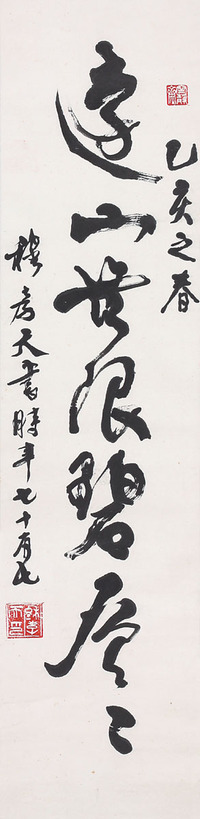 乙亥之春
遠山無限碧層〻
天書時年七十有